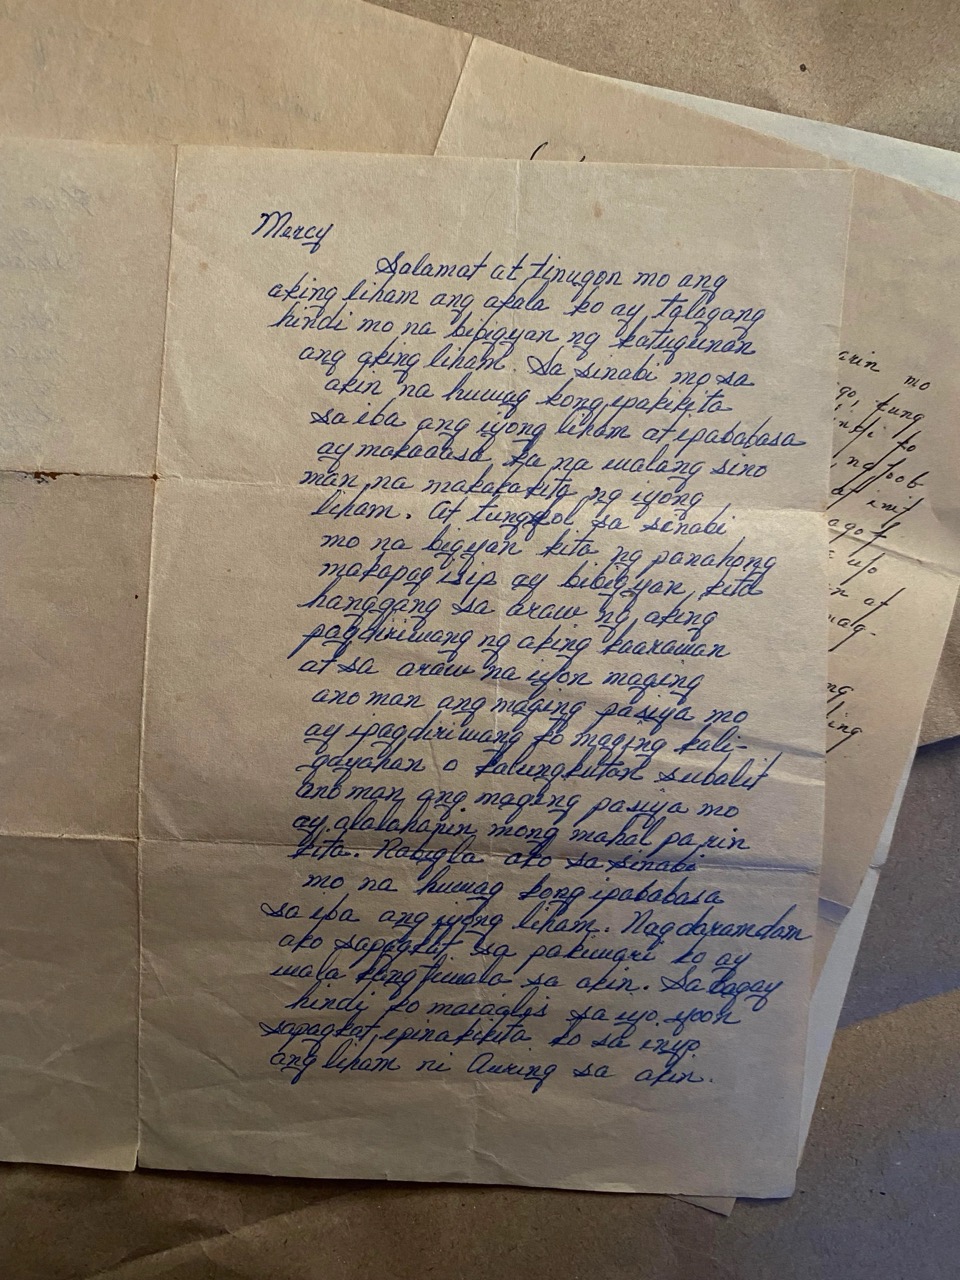 Mercy
Salamat at tinugon mo ang
aking liham ang akala ko ay talagang
hindi mo na bibigyan ng katugunan
ang aking liham. Sa sinabi mo sa
akin na huwag kong ipakikita
sa iba ang iyong liham at ipababasa
ay makaaasa ka na walang sino
man na makakakita ng iyong
liham. At tungkol sa sinabi
mo na bigyan kita ng panahong
makapag isip ay bibigyan kita
hanggang sa araw ng aking
pagdiriwang ng aking kaarawan
at sa araw na iyon maging
ano man ang maging pasiya mo
ay ipagdiriwang ko maging kali-
gayahan o kalungkutan subalit
ano man ang maging pasiya mo
ay alalahanin mong mahal pa rin
kita. Nabigla ako sa sinabi
mo na huwag kong ipababasa
sa iba ang iyong liham. Nagdaramdam
ako sapagkat sa pakiwari ko ay
wala kang tiwala sa akin. Sa bagay
hindi ko maiaalis sa iyo iyon
sapagkat ipinakikita ko sa inyo
ang liham ni Auring sa akin.
arin mo
go, kung
ko
ng loob
at init
ago
n at
mag-
ng